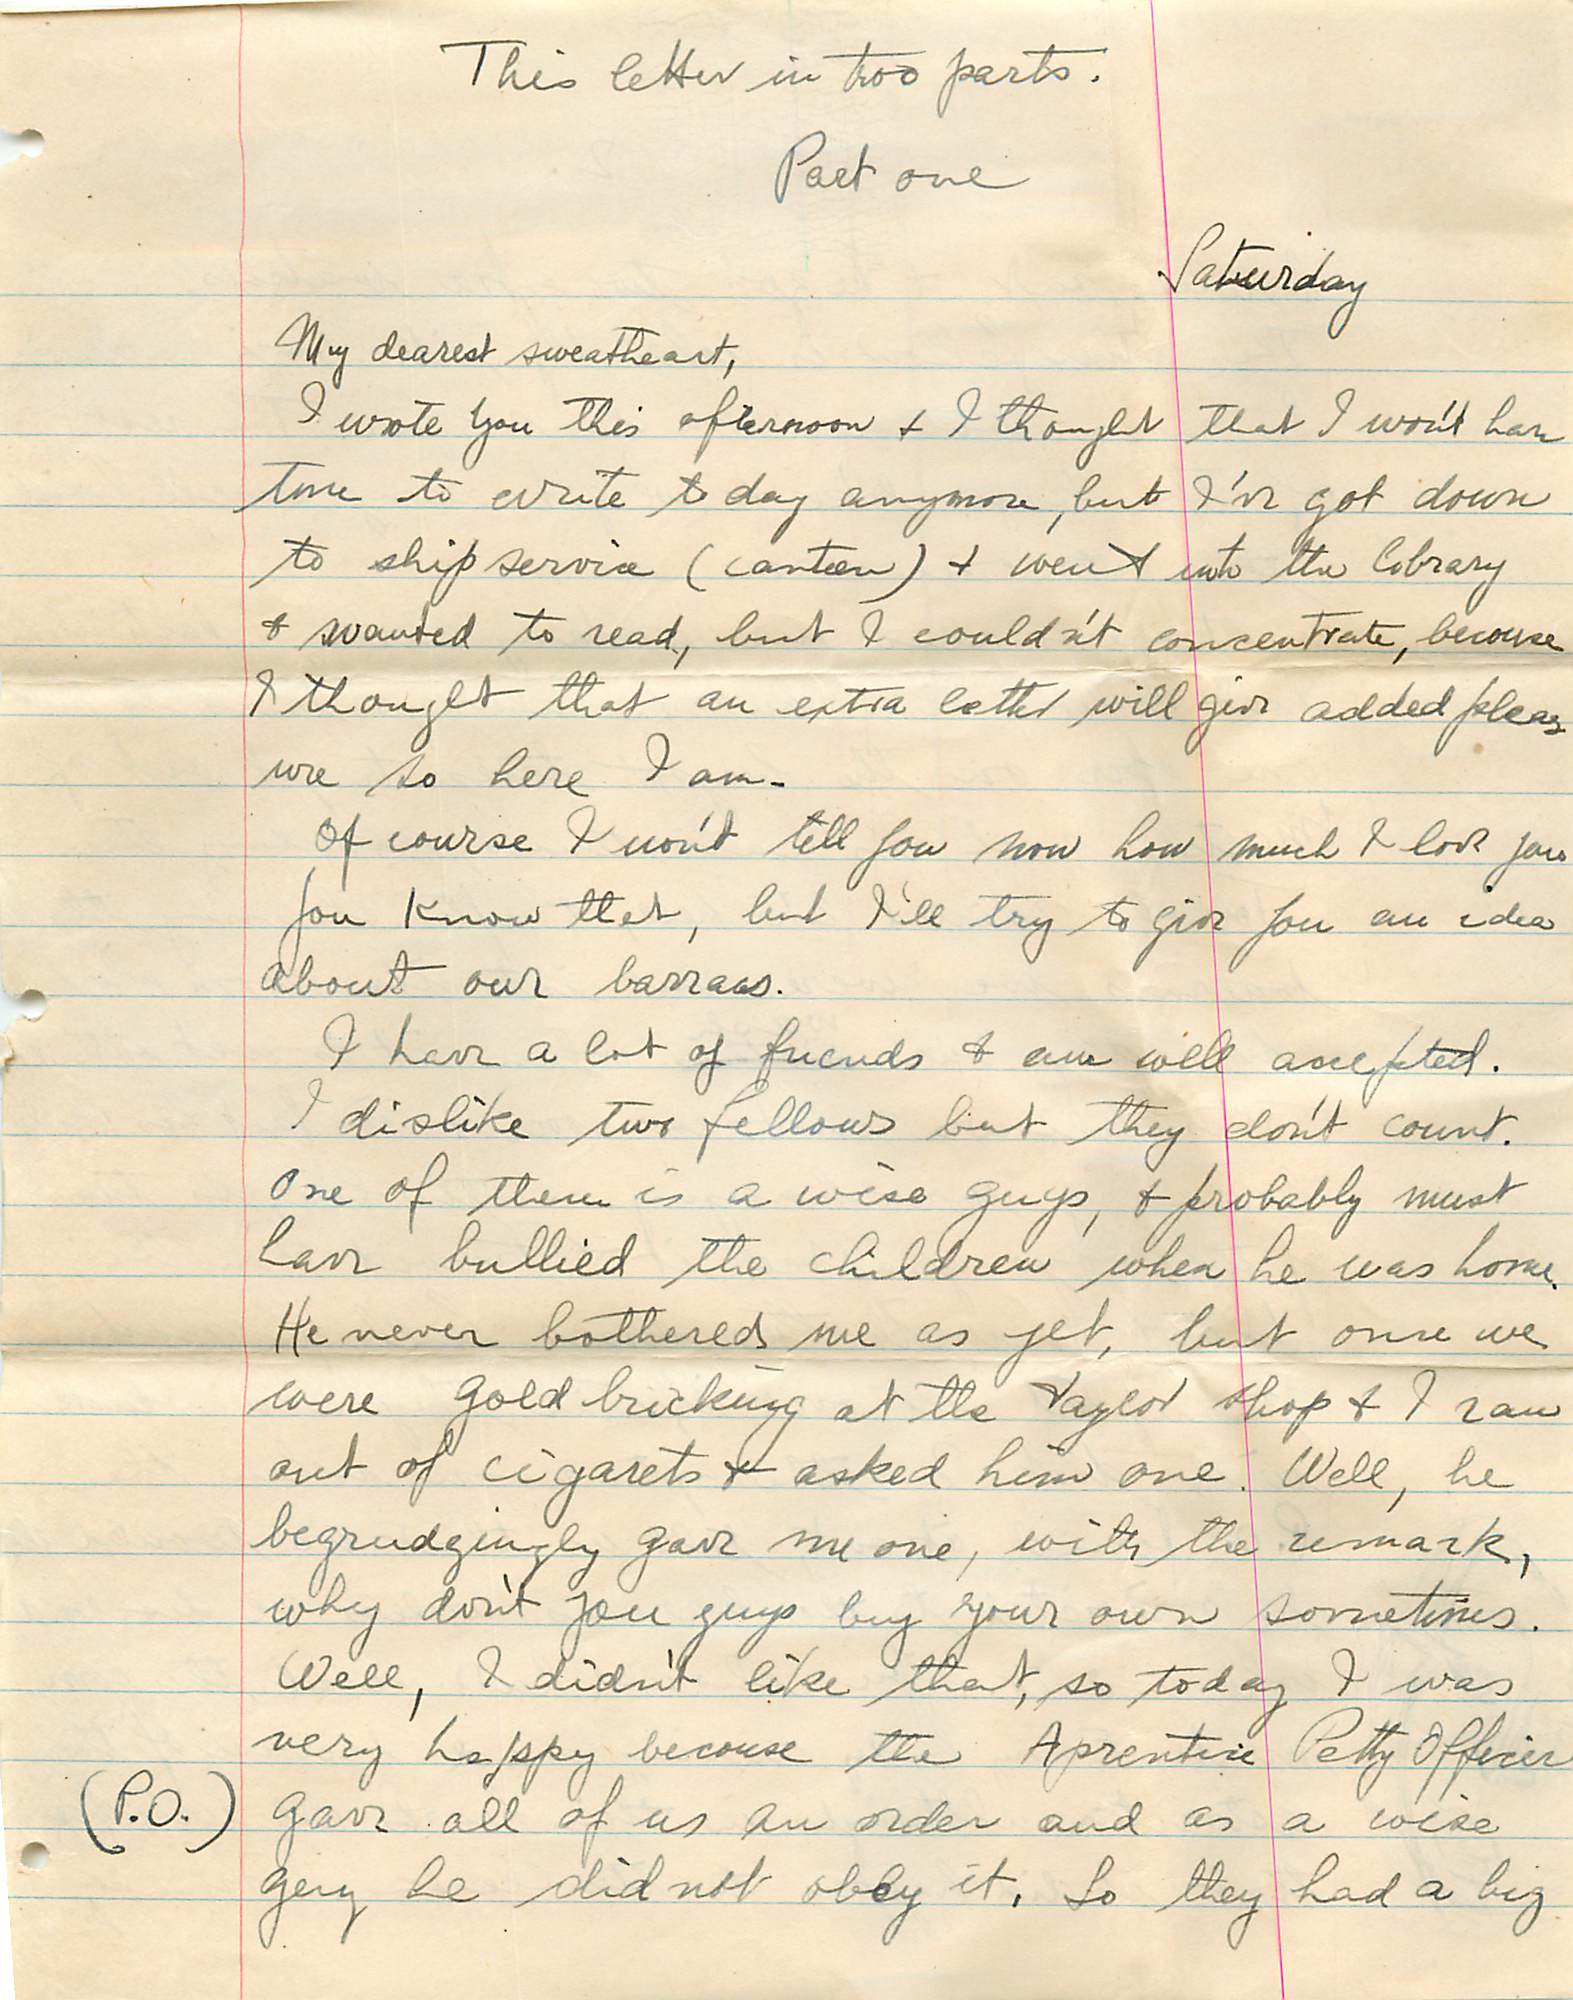 This letter in two parts.
Part one
Saturday
My dearest sweatheart,
I wrote you this afternoon & I thought that I won't have
time to write to day anymore, but I've got down
to ship service (canteen) & went into the library
& wanted to read, but I couldn't concentrate, becouse
I thought that an extra letter will give added pleas
ure so here I am-
Of course I won't tell you now how much I love you
you know that, but I'll try to give you an idea
about our barracs.
I have a lot of friends & am well accepted.
I dislike two fellows but they don't count.
One of them is a wise guys, & probably must
have bullied the children when he was home.
He never bothered me as yet, but once we
were goldbricking at the taylor shop & I ran
out of cigarets & asked him one. Well, he
begrudgingly gave me one, with the remark,
why don't you guys buy your own sometimes.
Well, I didn't like that, so today I was
very happy becouse the Aprentice Petty Officer
(P.O.) gave all of us an order and as a wise
guy he did not obey it. So they had a big